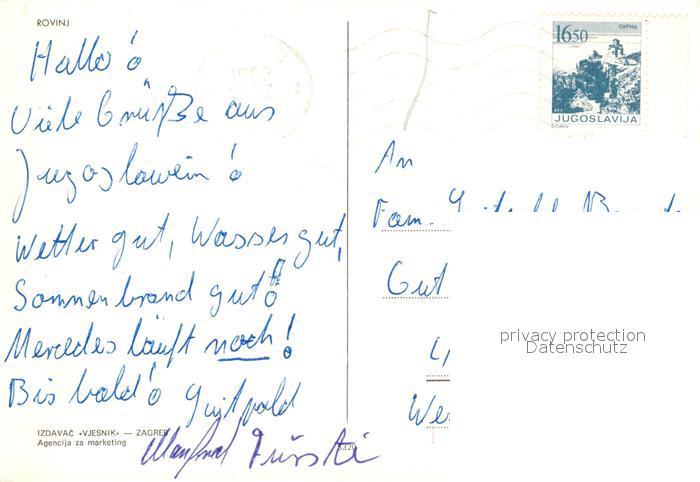 ROVINJ
Hallo!
Viele Grüße aus
Jugoslawein!
Wetter gut, Wasser gut,
Sonnenbrand gut!
Mercedes läuft noch!
Bis bald!
IZDAVAČ »VJESNIK« — ZAGREB
Agencija za marketing
Manfred
1650
JUGOSLAVIJA
An
Fam.
Gut
privacy protection
Datenschutz